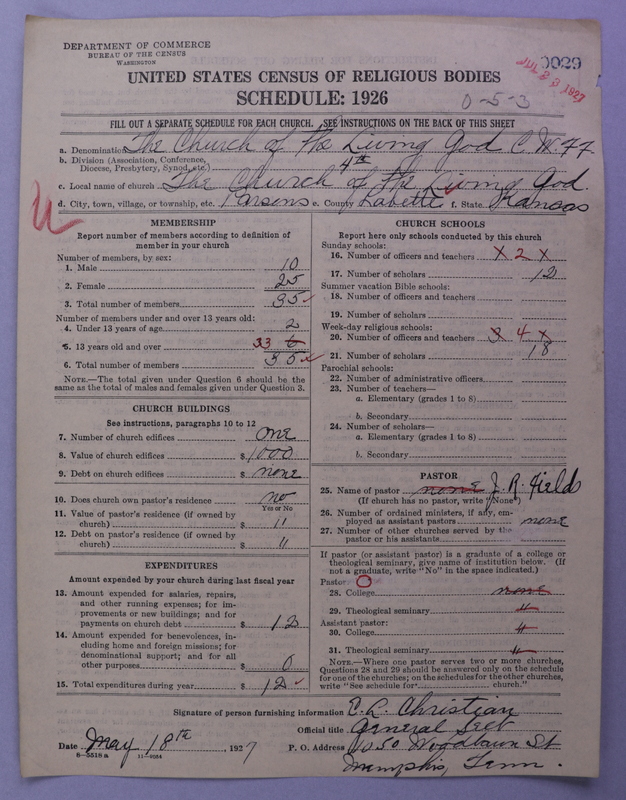 DEPARTMENT OF COMMERCE
BUREAU OF THE CENSUS
WASHINGTON
0029
JUL 23 1927
UNITED STATES CENSUS OF RELIGIOUS BODIES
SCHEDULE: 1926
0-5-3
FILL OUT A SEPARATE SCHEDULE FOR EACH CHURCH. SEE INSTRUCTIONS ON THE BACK OF THIS SHEET
a. Denomination The Church of the Living God C. W. F. F.
b. Division (Association, Conference,
Diocese, Presbytery, Synod, etc.) 4th
c. Local name of church The Church of the Living God
d. City, town, village, or township, etc. Parsons e. County Labette f. State Kansas
U
MEMBERSHIP
Report number of members according to definition of
member in your church
Number of members, by sex:
1. Male 10
2. Female 25
3. Total number of members 35
Number of members under and over 13 years old:
4. Under 13 years of age 2
5. 13 years old and over 33 6
6. Total number of members 35
NOTE.—The total given under Question 6 should be the
same as the total of males and females given under Question 3.
CHURCH BUILDINGS
See instructions, paragraphs 10 to 12
7. Number of church edifices one
8. Value of church edifices $ 1000
9. Debt on church edifices $ none
10. Does church own pastor's residence no
Yes or No
11. Value of pastor's residence (if owned by
church) $ "
12. Debt on pastor's residence (if owned by
church) $ "
EXPENDITURES
Amount expended by your church during last fiscal year
13. Amount expended for salaries, repairs,
and other running expenses; for im-
provements or new buildings; and for
payments on church debt $ 12
14. Amount expended for benevolences, in-
cluding home and foreign missions; for
denominational support; and for all
other purposes $ 0
15. Total expenditures during year $ 12
CHURCH SCHOOLS
Report here only schools conducted by this church
Sunday schools:
16. Number of officers and teachers x 2 x
17. Number of scholars 12
Summer vacation Bible schools:
18. Number of officers and teachers
19. Number of scholars
Week-day religious schools:
20. Number of officers and teachers 4 x
21. Number of scholars 18
Parochial schools:
22. Number of administrative officers
23. Number of teachers—
a. Elementary (grades 1 to 8)
b. Secondary
24. Number of scholars—
a. Elementary (grades 1 to 8)
b. Secondary
PASTOR
25. Name of pastor none J. R. Fields
(If church has no pastor, write "None")
26. Number of ordained ministers, if any, em-
ployed as assistant pastors none
27. Number of other churches served by the
pastor or his assistants
If pastor (or assistant pastor) is a graduate of a college or
theological seminary, give name of institution below. (If
not a graduate, write "No" in the space indicated.)
Pastor: O
28. College none
29. Theological seminary "
Assistant pastor:
30. College "
31. Theological seminary "
NOTE.—Where one pastor serves two or more churches,
Questions 28 and 29 should be answered only on the schedule
for one of the churches; on the schedules for the other churches,
write "See schedule for church."
Signature of person furnishing information C. L. Christian
Official title General Sect
Date May 18th 1927 P. O. Address 1050 Woodlawn St
8—5518a 11—9064 Memphis, Tenn.